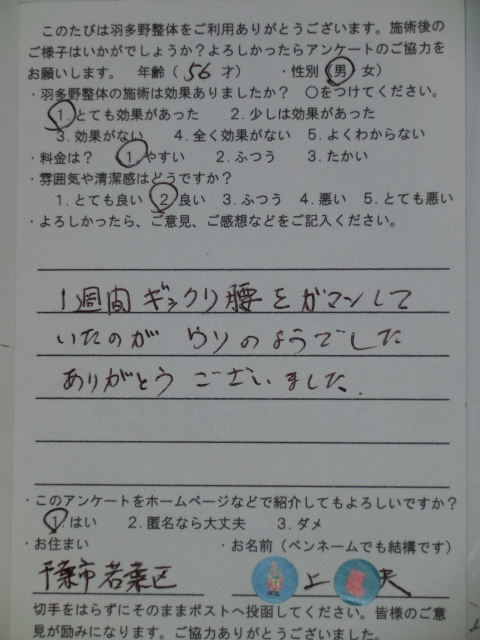 このたびは羽多野整体をご利用ありがとうございます。施術後の
ご様子はいかがでしょうか？よろしかったらアンケートのご協力を
お願いします。 年齢（56才） ・性別（男 女）
・羽多野整体の施術は効果ありましたか？ ○をつけてください。
1.とても効果があった 2.少しは効果があった
3.効果がない 4.全く効果がない 5.よくわからない
・料金は？ 1.やすい 2.ふつう 3.たかい
・雰囲気や清潔感はどうですか？
1.とても良い 2.良い 3.ふつう 4.悪い 5.とても悪い
・よろしかったら、ご意見、ご感想などをご記入ください。
1週間ギックリ腰をガマンして
いたのが ウソのようでした
ありがとう ございました.
・このアンケートをホームページなどで紹介してもよろしいですか？
1.はい 2.匿名なら大丈夫 3.ダメ
・お住まい ・お名前（ペンネームでも結構です）
千葉市若葉区 上 夫
切手をはらずにそのままポストへ投函してください。皆様のご意
見が励みになります。ご協力ありがとうございました。